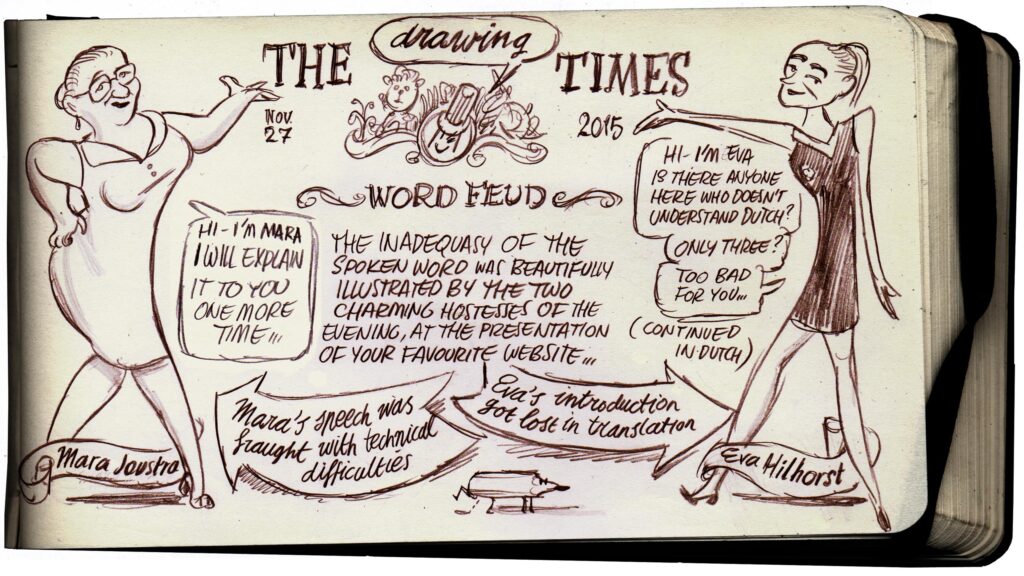 THE drawing TIMES
NOV.
27
2015
WORD FEUD
HI - I'M MARA
I WILL EXPLAIN
IT TO YOU
ONE MORE
TIME...
THE INADEQUASY OF THE
SPOKEN WORD WAS BEAUTIFULLY
ILLUSTRATED BY THE TWO
CHARMING HOSTESSES OF THE
EVENING, AT THE PRESENTATION
OF YOUR FAVOURITE WEBSITE...
HI - I'M EVA
IS THERE ANYONE
HERE WHO DOESN'T
UNDERSTAND DUTCH?
ONLY THREE?
TOO BAD
FOR YOU...
(CONTINUED
IN DUTCH)
Mara's speech was
fraught with technical
difficulties
Eva's introduction
got lost in translation
Mara Joustra
Eva Hilhorst